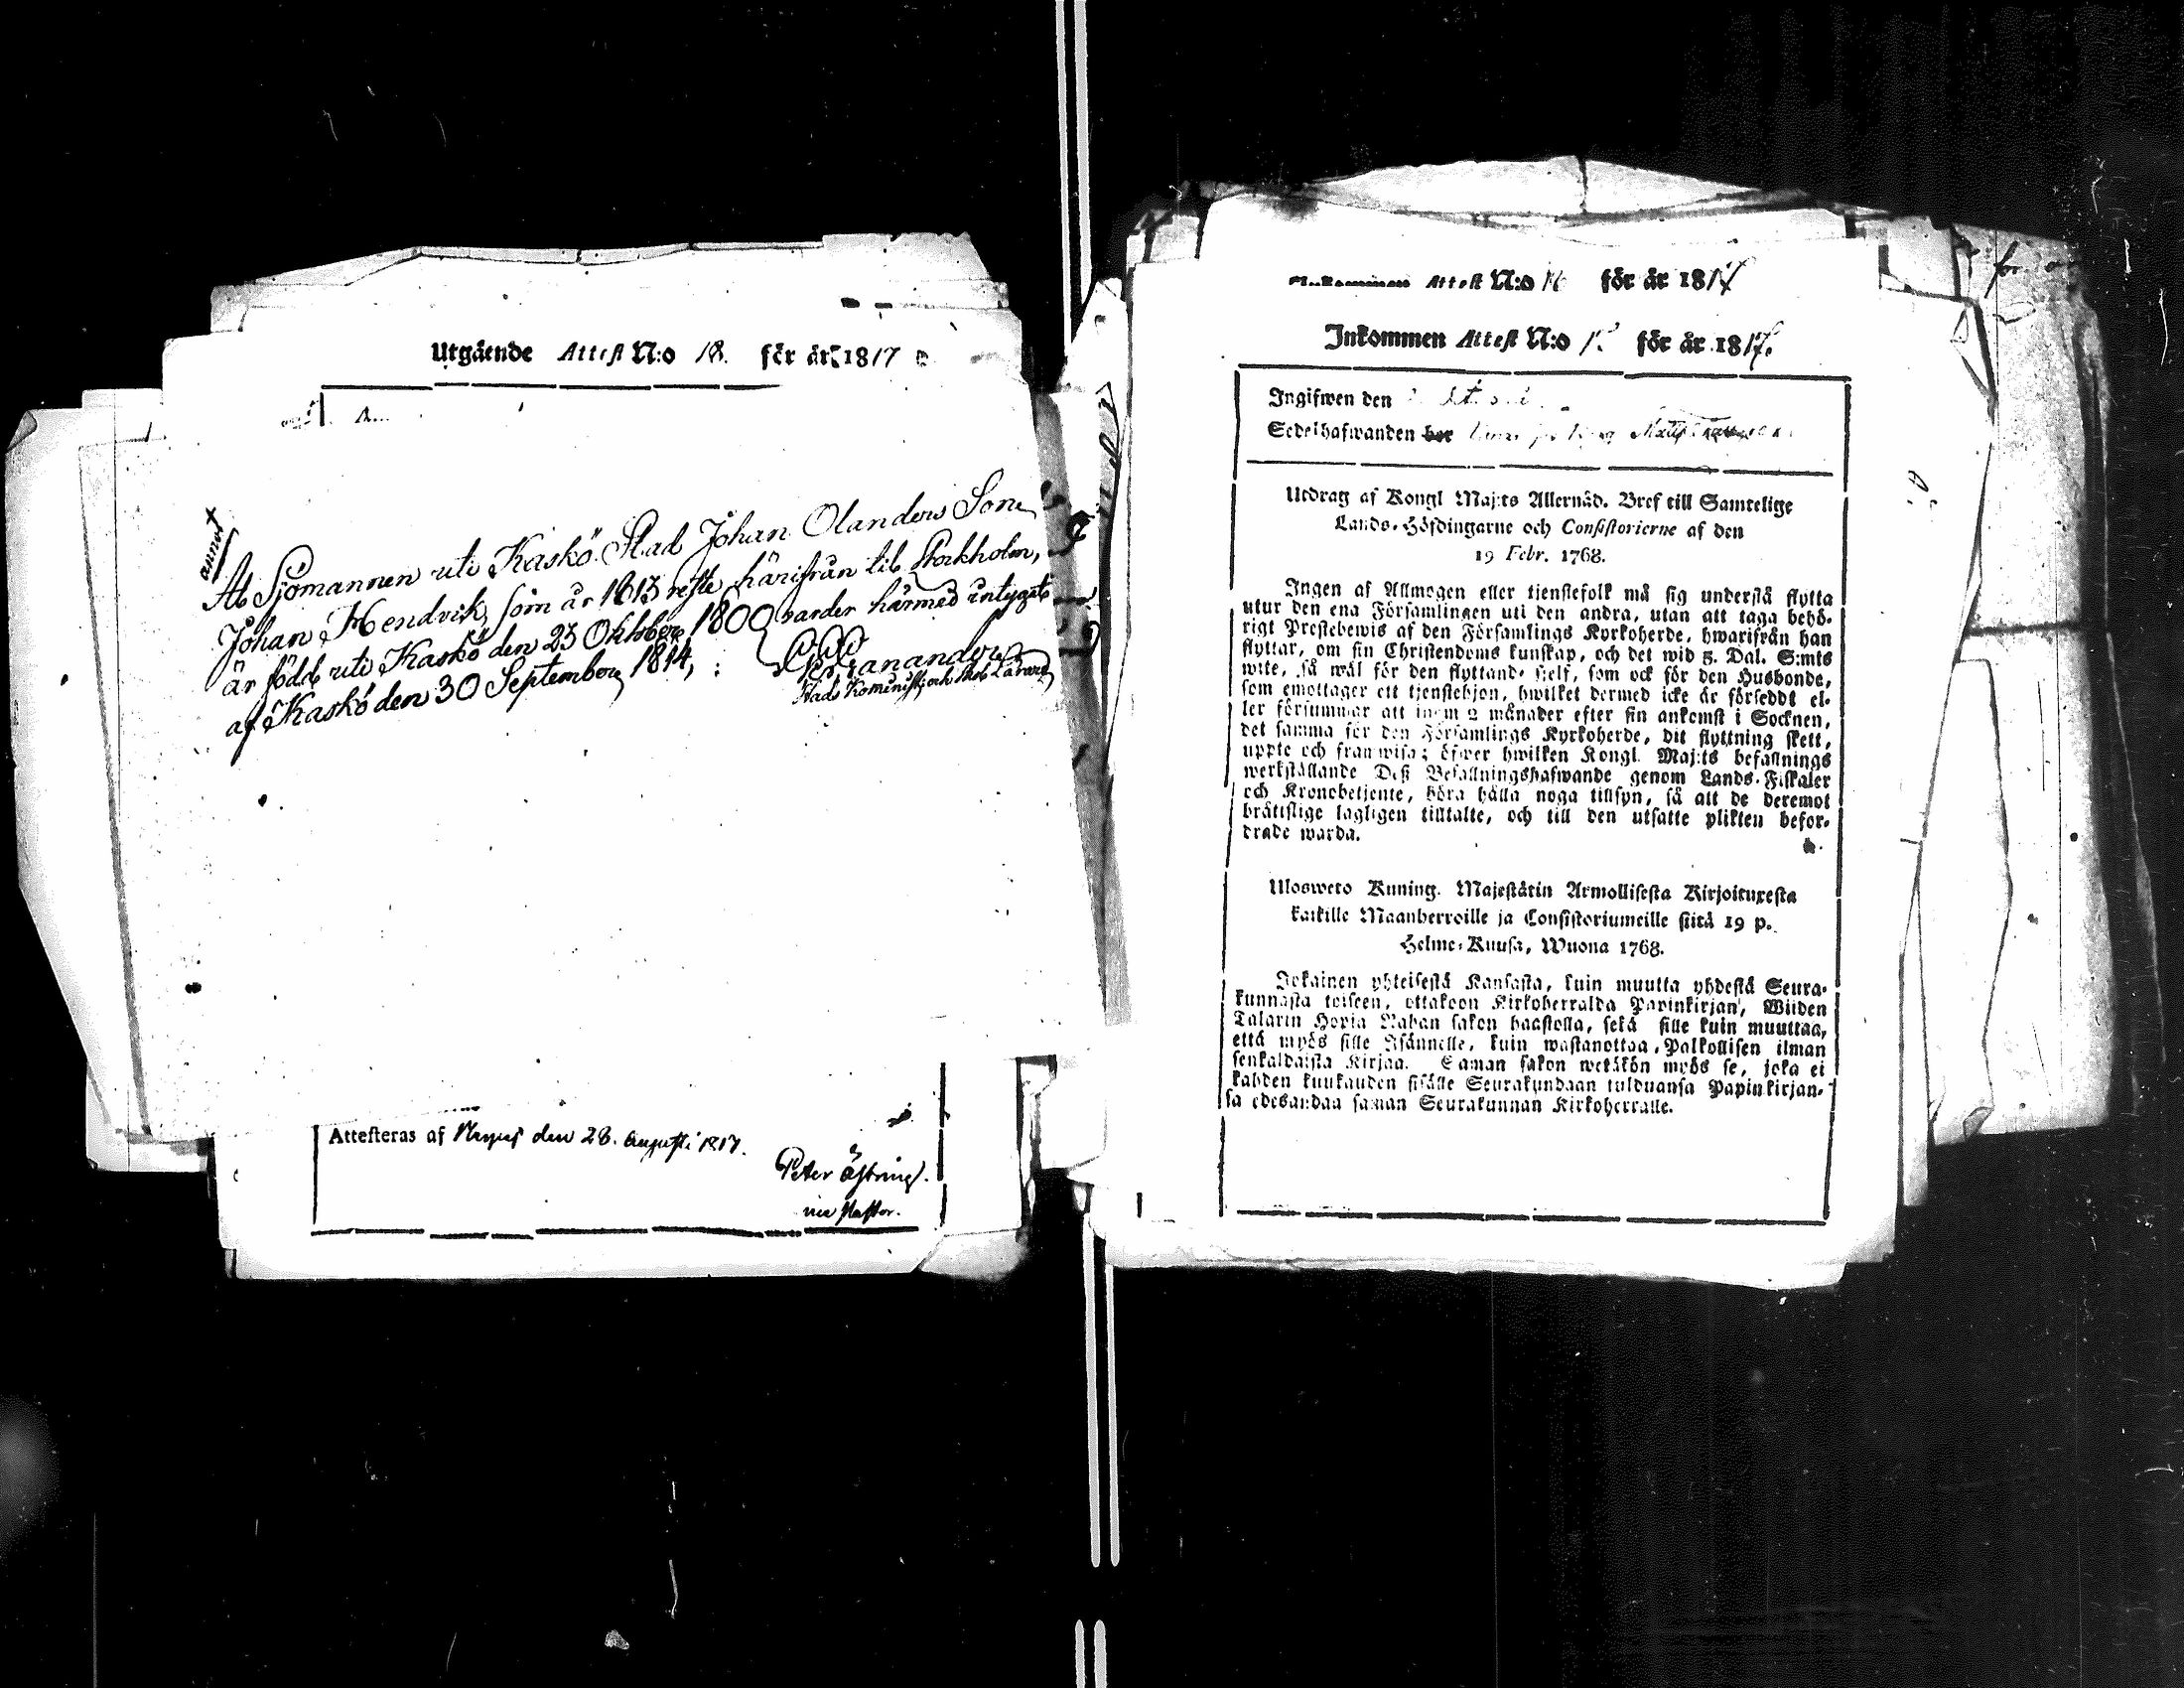 Utgående Attest N:o 18. för år 1817
annat
At Sjömannen uti Kaskö Stad Johan Olanders Son
Johan Hendrik, som år 1813 reste härifrån til Stockholm,
är född uti Kaskö den 23 Oktober 1800 varder härmed intygat
af Kaskö den 30 September 1814,
Stads Kominist; och Skol Lärare
Attesteras af den 28. Augusti 1817.
Peter Östring.
vice Pastor.
Attest N:o för år 181
Inkommen Attest N:o för år 181
Ingifwen den
Sedelhafwanden bor
Utdrag af Kongl Maj:ts Allernåd. Bref till Samtelige
Lands-Höfdingarne och Consistorierne af den
19 Febr. 1768.
Ingen af Allmogen eller tjenstefolk må sig understå flytta
utur den ena Församlingen uti den andra, utan att taga behö-
rigt Prestebewis af den Församlings Kyrkoherde, hwarifrån han
flyttar, om sin Christendoms kunskap, och det wid 5. Dal. S:mts
wite, så wäl för den flyttande sielf, som ock för den Husbonde,
som emottager ett tjenstehjon, hwilket dermed icke är förseddt el-
ler försummar att inom 2 månader efter sin ankomst i Socknen,
det samma för den Församlings Kyrkoherde, dit flyttning skett,
uppte och framwisa; öfwer hwilken Kongl. Maj:ts befallnings
werkställande Deß Befallningshafwande genom Lands-Fiskaler
och Kronobetjente, böra hålla noga tillsyn, så att de deremot
bråttslige lagligen tilltalte, och till den utsatte plikten befor-
drade warda.
Ulosweto Kuning. Majestätin Armollisesta Kirjoituxesta
kaikille Maanherroille ja Consistoriumeille siitä 19 p.
Helme-Kuusa, Wuona 1768.
Jokainen yhteisestä Kansasta, kuin muutta yhdestä Seura-
kunnasta toiseen, ottakoon Kirkoherralda Papinkirjan, Wiiden
Talarin Hopia Rahan sakon haastolla, sekä sille kuin muuttaa,
että myös sille Isännelle, kuin wastanottaa Palkollisen ilman
senkaldaista Kirjaa. Saman sakon wetäkön myös se, joka ei
kahden kuukauden sisälle Seurakundaan tulduansa Papinkirjan-
sa edesandaa saman Seurakunnan Kirkoherralle.